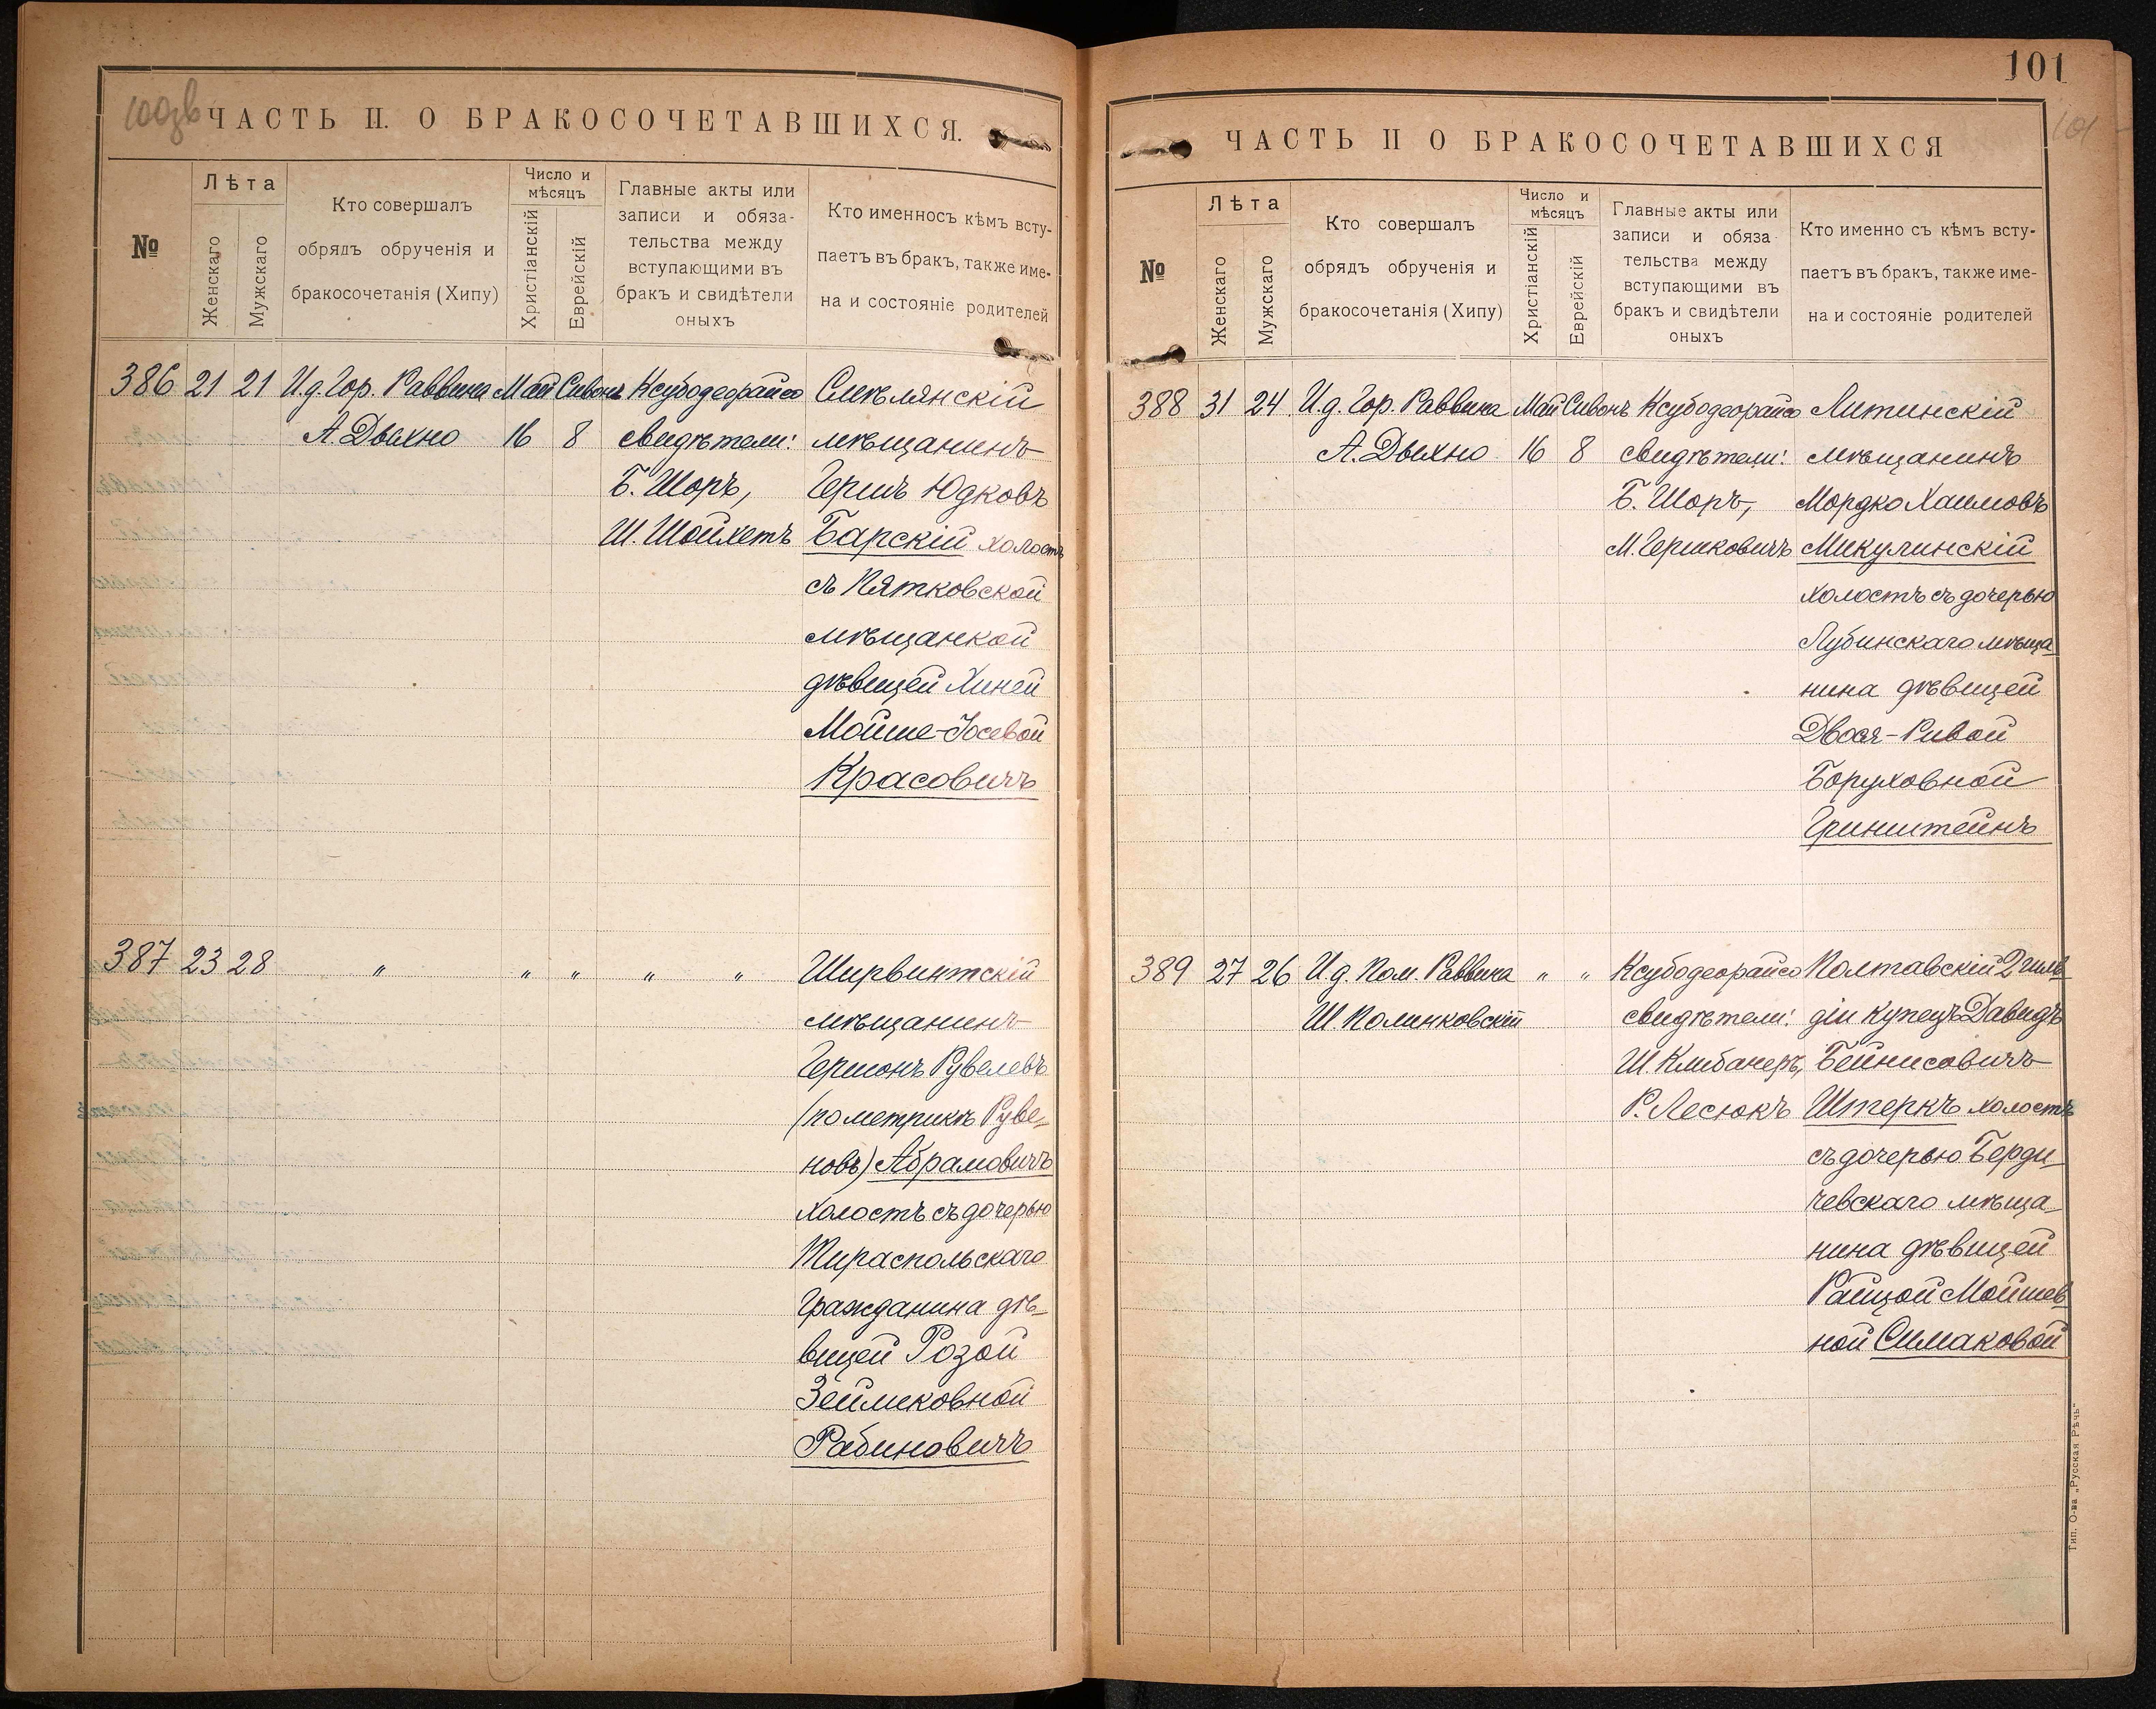 100зв
ЧАСТЬ II. О БРАКОСОЧЕТАВШИХСЯ.
№
Лѣта
Женскаго
Мужскаго
Кто совершалъ
обрядъ обрученія и
бракосочетанія (Хипу)
Число и
мѣсяцъ
Христіанскій
Еврейскій
Главные акты или
записи и обяза-
тельства между
вступающими въ
бракъ и свидѣтели
оныхъ
Кто именносъ кѣмъ всту-
паетъ въ бракъ, также име-
на и состояніе родителей
386 21 21 И.д. Гор. Раввина Май Сивонъ Ксубодеорайсо Смѣлянскій
А Дыхно 16 8 свидѣтели: мѣщанинъ
Б. Шоръ, Гершъ Юдковъ
Ш. Шойхетъ Барскій холостъ
съ Пятковской
мѣщанкой
дѣвицей Хиней
Мойше-Іосевой
Красовичъ
387 23 28 " " " " " Ширвинтскій
мѣщанинъ
Гершонъ Рувелевъ
(по метрикѣ Руве-
новъ) Абрамовичъ
холостъ съ дочерью
Тираспольскаго
Гражданина дѣ-
вицей Розой
Зейликовной
Рабиновичъ
101
101
ЧАСТЬ II О БРАКОСОЧЕТАВШИХСЯ
№
Лѣта
Женскаго
Мужскаго
Кто совершалъ
обрядъ обрученія и
бракосочетанія (Хипу)
Число и
мѣсяцъ
Христіанскій
Еврейскій
Главные акты или
записи и обяза
тельства между
вступающими въ
бракъ и свидѣтели
оныхъ
Кто именно съ кѣмъ всту-
паетъ въ бракъ, также име-
на и состояніе родителей
388 31 24 И.д. Гор. Раввина Май Сивонъ Ксубодеорайсо Литинскій
А. Дыхно 16 8 свидѣтели: мѣщанинъ
Б. Шоръ, Мордко Хаимовъ
М. Гершковичъ Микулинскій
холостъ съ дочерью
Лубинскаго мѣща
нина дѣвицей
Двося-Ривой
Боруховной
Гринштейнъ
389 27 26 И.д. Пом. Раввина " " Ксубодеорайсо Полтавскій 2 гиль
Ш Полинковскій свидѣтели: діи купецъ Давидъ
Ш Клибанеръ, Бейнисовичъ
Р. Лесюкъ Штеркъ холостъ
съ дочерью Берди-
чевскаго мѣща-
нина дѣвицей
Райцой Мойшев
ной Симаковой
Тип. О-ва „Русская Рѣчь“